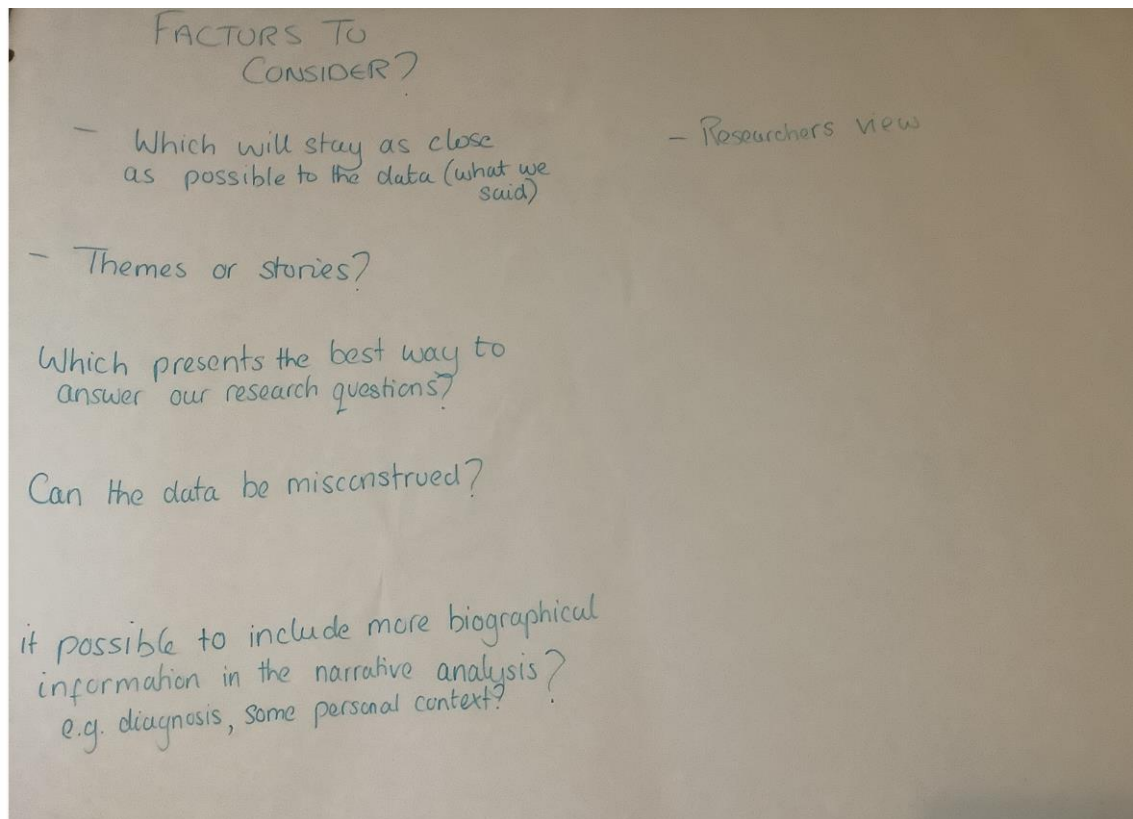 FACTORS TO
CONSIDER?
- Which will stay as close
as possible to the data (what we
said)
- Researchers view
- Themes or stories?
Which presents the best way to
answer our research questions?
Can the data be misconstrued?
it possible to include more biographical
information in the narrative analysis?
e.g. diagnosis, some personal context?